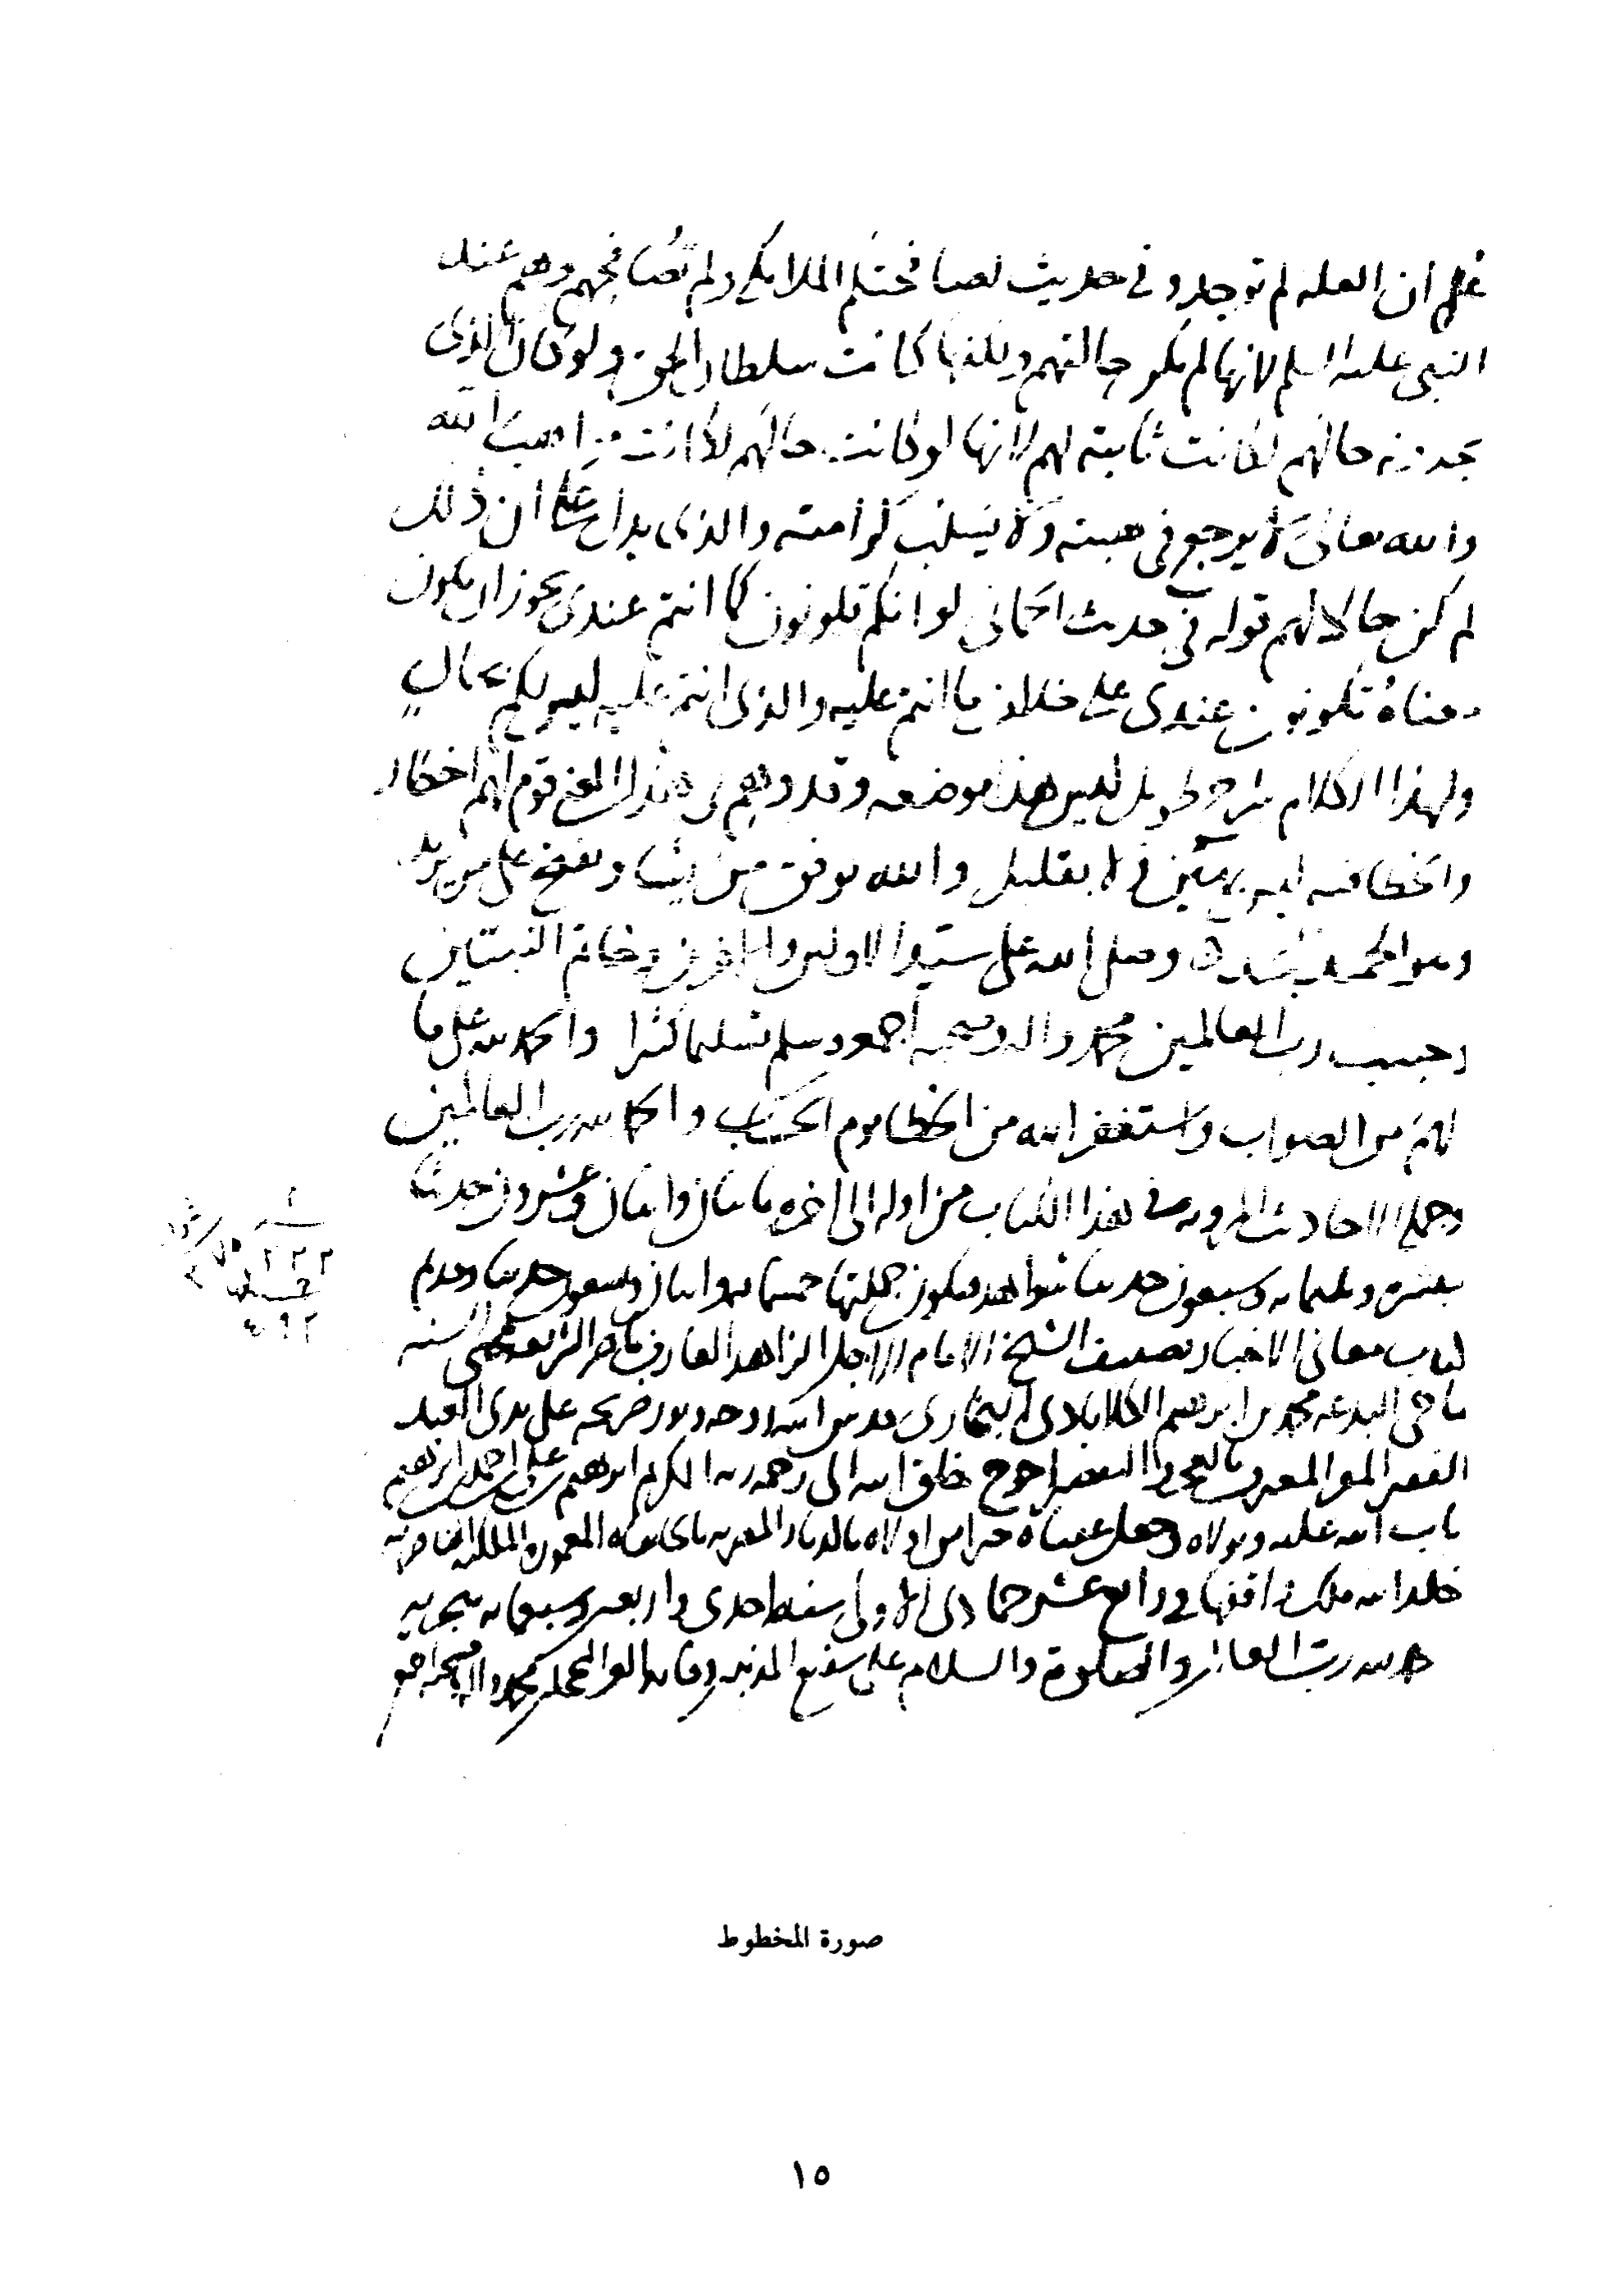 فعلم ان العلة لم توجد و في حديث لصافحتكم الملايكة ولم تصافحهم وهم عند
النبي عليه السلم لانها لم تكن حالتهم ولكنها كانت سلطان الحق ولو كان الذي
يجدونه حالهم لكانت ثابتة لهم لانها لو كانت حالهم لكانت مواهب الله
والله تعالى لا يرجع في هبته ولا يسلب كرامته والذي يدل على ان ذلك
لم يكن حالا لهم قوله في حديث لو انكم تكونون كما انتم عندي يجوز ان يكون
معناه تكونون عندي على خلاف ما انتم عليه والذي انتم عليه ليس لكم بحال
ولهذا الكلام شرح طويل ليس هذا موضعه وقد وهم في هذا المعنى قوم لهم اخطار
والخطا فيه ليس بهين ولا بقليل والله يوفق من يشا ويفتح على من يريد
وهو الحميد وصلى الله على سيد الاولين والاخرين وخاتم النبيين
وحبيب رب العالمين محمد واله وصحبه اجمعين وسلم تسليما كثيرا والحمد لله على ما
الهم من الصواب واستغفر الله من الخطا يوم الحساب والحمد لله رب العالمين
وجملة الاحاديث المروية في هذا الكتاب من اوله الى اخره مايتان واثنان وعشرون حديثا
بعشرة وثلثماية وسبعون حديثا شواهد فيكون جملتها خمسماية واثنان وتسعون حديثا وقد تم
كتاب معاني الاخبار تصنيف الشيخ الامام الاجل الزاهد العارف ناصر الشريعة محيي السنه
ماحي البدعه محمد بن ابرهيم الكلاباذي البخاري قدس الله روحه ونور ضريحه على يدي العبد
الفقير المعترف بالعجز والتقصير احوج خلق الله الى رحمة ربه الكريم ابرهيم بن علي بن احمد بن ابرهيم
تاب الله عليه وتولاه وجعل عقباه خيرا من اولاه بالديار المصرية المعمورة الملكية الناصرية
خلد الله ملك في رابع عشر جمادى الاولى سنة احدى واربعين وسبعماية هجرية
حمد لله رب العالمين والصلوة والسلام على شفيع المذنبين وقايد الغر المحجلين محمد واله وصحبه اجمعين
٢٢٢
٣٧٠
٥٩٢
صورة المخطوط
١٥